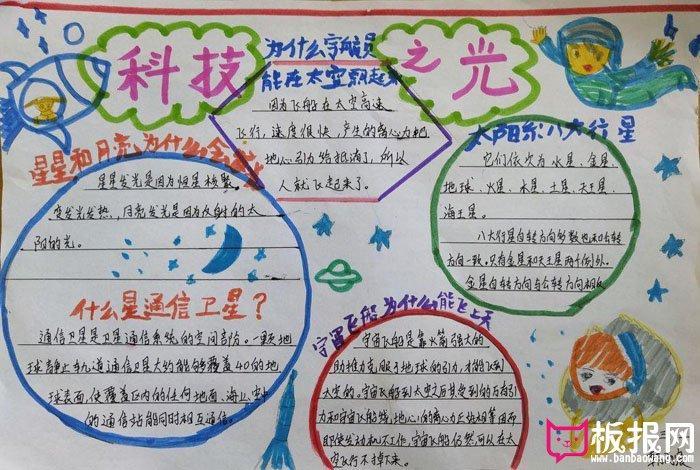 科技之光
为什么宇航员
能在太空飘起来
因为飞船在太空高速
飞行，速度很快，产生的离心力把
地心引力给抵消了，所以
人就飞起来了。
星星和月亮为什么会
星星发光是因为恒星核聚
变发光发热，月亮发光是因为反射的太
阳的光。
什么是通信卫星？
通信卫星是卫星通信系统的空间
球静止轨道通信卫星大约能够覆盖40的地
球表面，使覆盖区内的任何地面、海上、空中
的通信站能同时相互通信。
太阳系八大行星
它们依次为水星、金星
地球、火星、木星、土星、天王星
海王星。
八大行星自转方向多数也和公转
方向一致。只有金星和天王星两个例外。
金星自转方向与公转方向相反
宇宙飞船为什么能飞上天
宇宙飞船是靠火箭强大的
助推力克服了地球的引力，才能飞到
太空的。宇宙飞船到太空之后其受到的万有引
力和宇宙飞船绕地心的离心力正好相等因而
即使发动机不工作，宇宙飞船仍然可以在太
空飞行不掉下来。
板报网
www.banbaowang.com